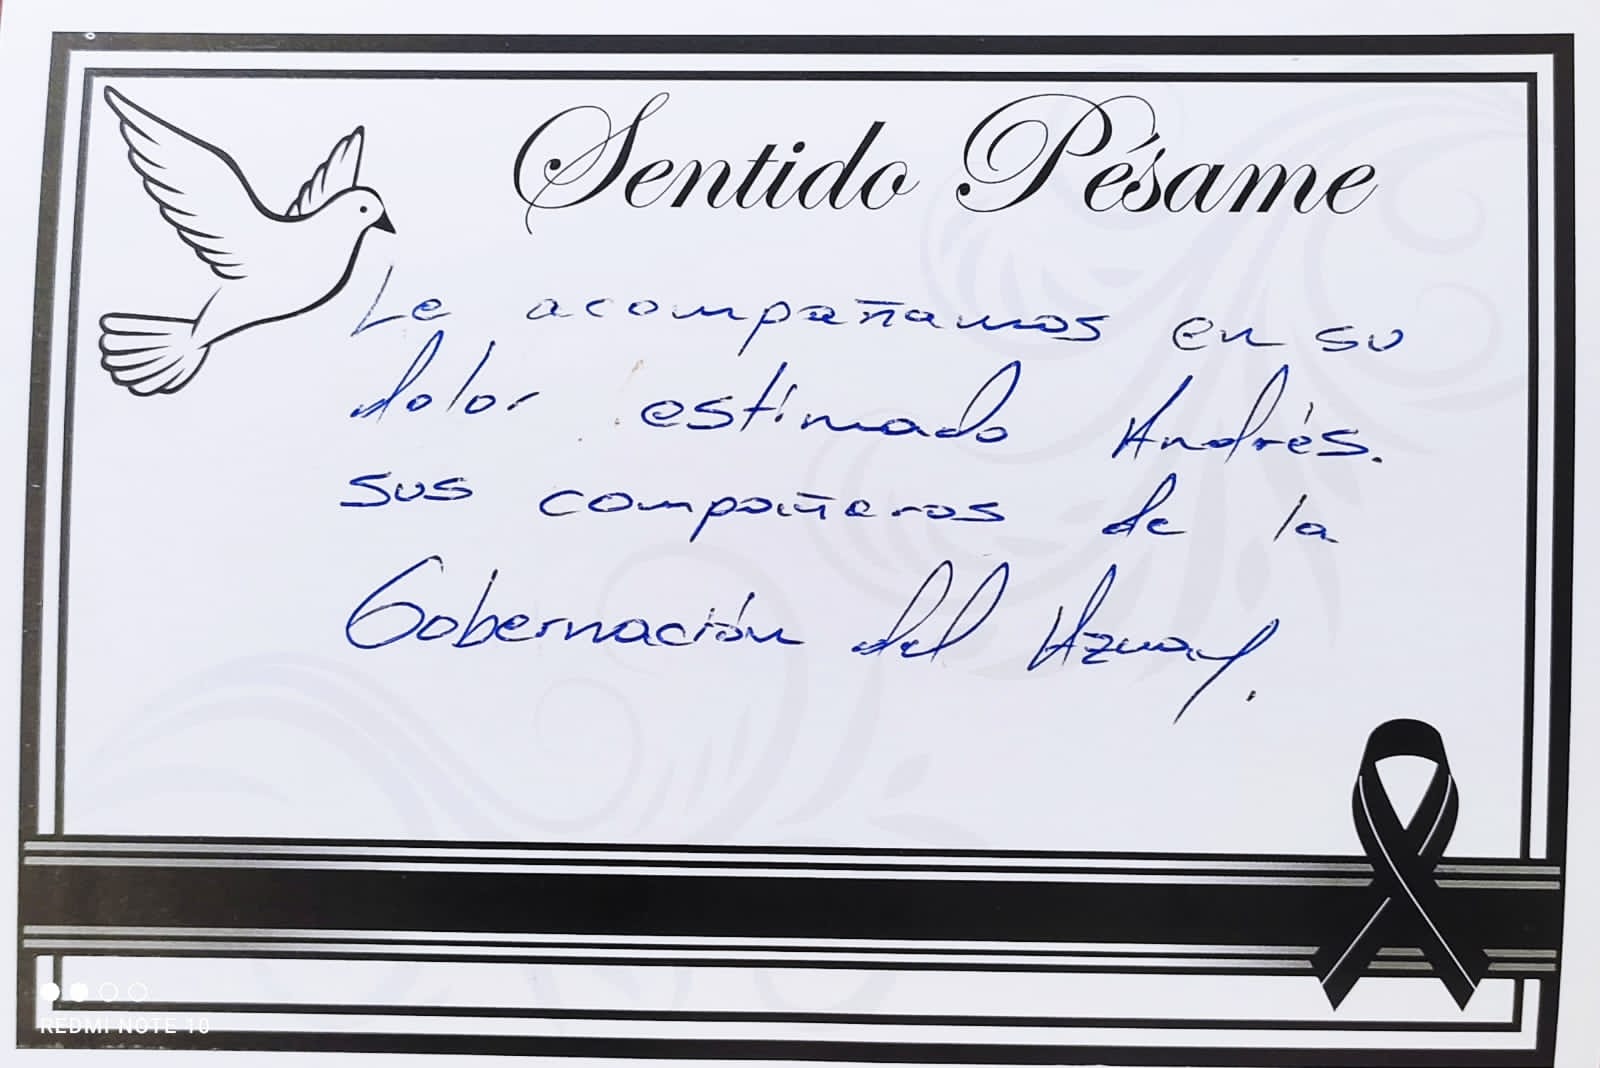 Sentido Pésame
Le acompañamos en su
dolor estimado Andrés.
sus compañeros de la
Gobernación del Azuay.
REDMI NOTE 10